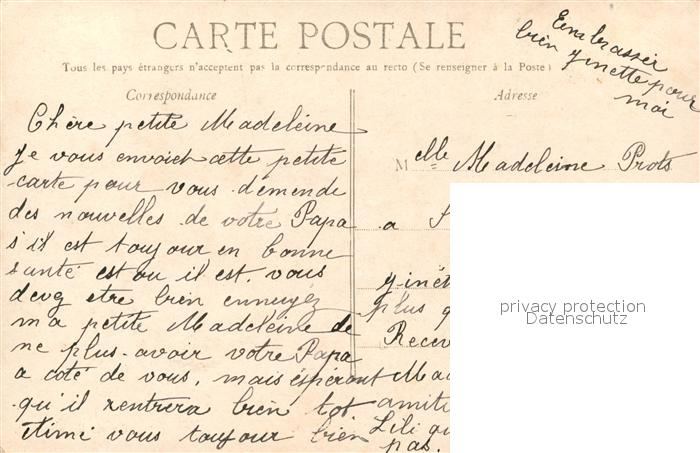 CARTE POSTALE
Tous les pays étrangers n'acceptent pas la correspondance au recto (Se renseigner à la Poste)
Correspondance
Chère petite Madeleine
je vous envoiet cette petite
carte pour vous demende
des nouvelles de votre Papa
s'il est toujour en bonne
santé est ou il est. vous
devez etre bien ennuyez
ma petite Madeleine de
ne plus avoir votre Papa
a coté de vous, mais éspéront
qu'il rentrera bien tot
étimé vous toujour bien
Embrasser
bien ginette pour
moi
Adresse
Melle Madeleine Prots
a
ginét
plus
Recev
Mad
amiti
Lili
pas.
privacy protection
Datenschutz